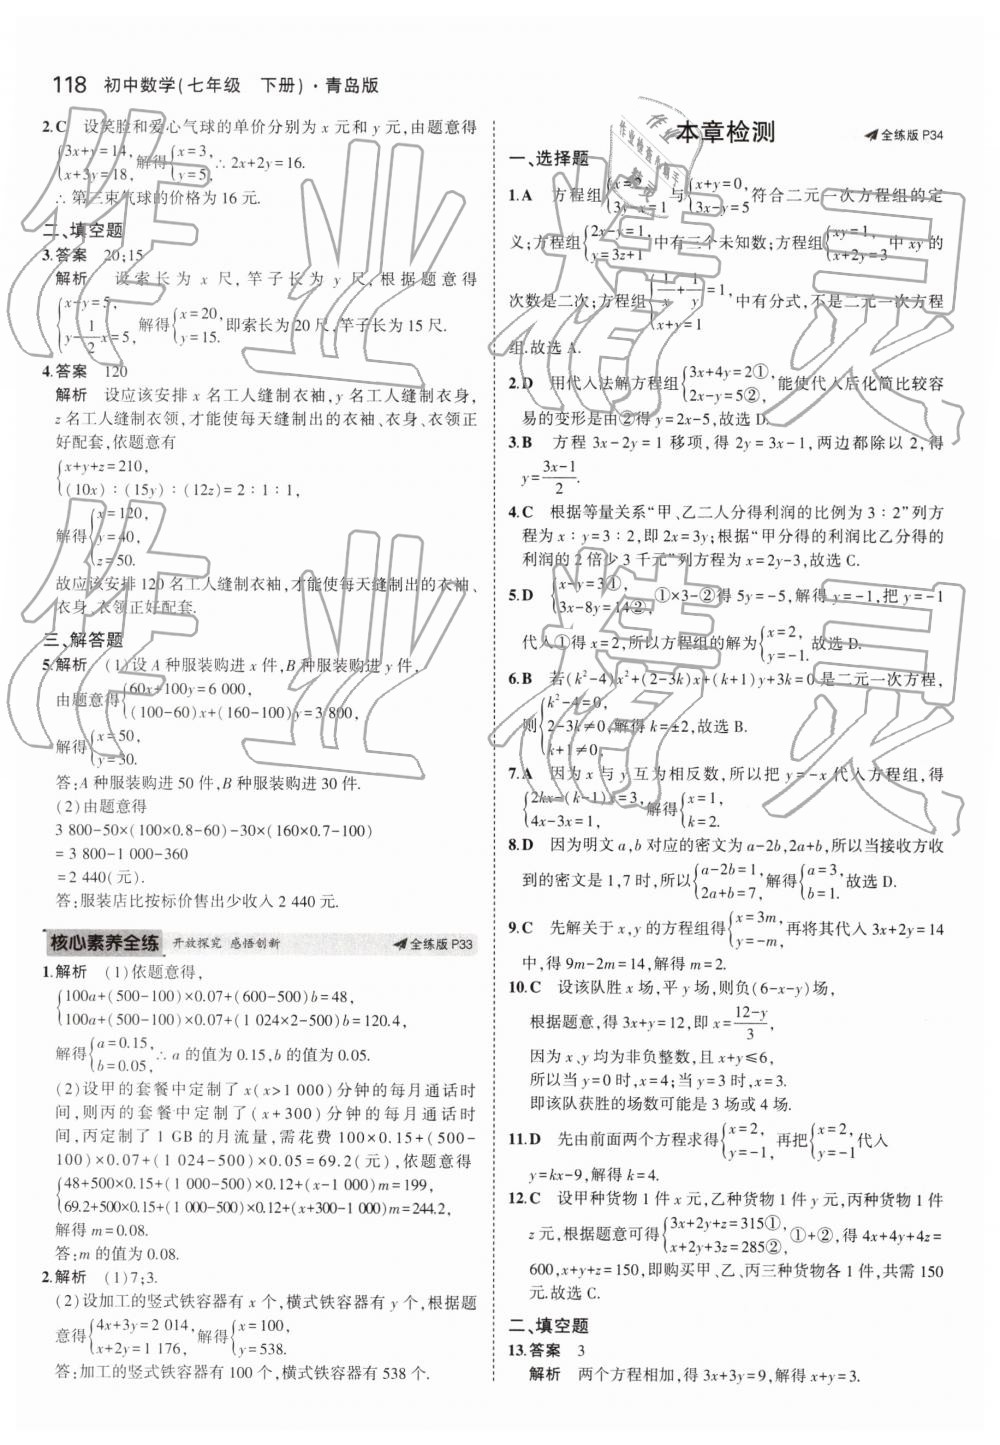 118 初中数学(七年级 下册)·青岛版
2.C 设笑脸和爱心气球的单价分别为 x 元和 y 元,由题意得
{3x+y=14, x+3y=18, 解得{x=3, y=5, ∴ 2x+2y=16.
∴ 第三束气球的价格为 16 元.
二、填空题
3.答案 20;15
解析 设索长为 x 尺,竿子长为 y 尺,根据题意得
{x-y=5, y-1/2x=5, 解得{x=20, y=15. 即索长为 20 尺,竿子长为 15 尺.
4.答案 120
解析 设应该安排 x 名工人缝制衣袖,y 名工人缝制衣身,
z 名工人缝制衣领,才能使每天缝制出的衣袖、衣身、衣领正
好配套,依题意有
{x+y+z=210, (10x)∶(15y)∶(12z)=2∶1∶1,
解得{x=120, y=40, z=50.
故应该安排 120 名工人缝制衣袖,才能使每天缝制出的衣袖、
衣身、衣领正好配套.
三、解答题
5.解析 (1)设 A 种服装购进 x 件,B 种服装购进 y 件,
由题意得{60x+100y=6 000, (100-60)x+(160-100)y=3 800,
解得{x=50, y=30.
答:A 种服装购进 50 件,B 种服装购进 30 件.
(2)由题意得
3 800-50×(100×0.8-60)-30×(160×0.7-100)
=3 800-1 000-360
=2 440(元).
答:服装店比按标价售出少收入 2 440 元.
核心素养全练 开放探究 感悟创新 全练版 P33
1.解析 (1)依题意得,
{100a+(500-100)×0.07+(600-500)b=48, 100a+(500-100)×0.07+(1 024×2-500)b=120.4,
解得{a=0.15, b=0.05, ∴ a 的值为 0.15,b 的值为 0.05.
(2)设甲的套餐中定制了 x(x>1 000)分钟的每月通话时
间,则丙的套餐中定制了(x+300)分钟的每月通话时
间,丙定制了 1 GB 的月流量,需花费 100×0.15+(500-
100)×0.07+(1 024-500)×0.05=69.2(元),依题意得
{48+500×0.15+(1 000-500)×0.12+(x-1 000)m=199, 69.2+500×0.15+(1 000-500)×0.12+(x+300-1 000)m=244.2,
解得 m=0.08.
答:m 的值为 0.08.
2.解析 (1)7;3.
(2)设加工的竖式铁容器有 x 个,横式铁容器有 y 个,根据题
意得{4x+3y=2 014, x+2y=1 176, 解得{x=100, y=538.
答:加工的竖式铁容器有 100 个,横式铁容器有 538 个.
本章检测 全练版 P34
一、选择题
1.A 方程组{x=2, 3y-x=1 与{x+y=0, 3x-y=5 符合二元一次方程组的定
义;方程组{2x-y=1, y=3z+1 中有三个未知数;方程组{xy=1, x+2y=3 中 xy 的
次数是二次;方程组{1/x+1/y=1, x+y=1 中有分式,不是二元一次方程
组.故选 A.
2.D 用代入法解方程组{3x+4y=2①, 2x-y=5②, 能使代入后化简比较容
易的变形是由②得 y=2x-5,故选 D.
3.B 方程 3x-2y=1 移项,得 2y=3x-1,两边都除以 2,得
y=(3x-1)/2.
4.C 根据等量关系“甲、乙二人分得利润的比例为 3∶2”列方
程为 x∶y=3∶2,即 2x=3y;根据“甲分得的利润比乙分得的
利润的 2 倍少 3 千元”列方程为 x=2y-3,故选 C.
5.D {x-y=3①, 3x-8y=14②, ①×3-②得 5y=-5,解得 y=-1,把 y=-1
代入①得 x=2,所以方程组的解为{x=2, y=-1. 故选 D.
6.B 若(k²-4)x²+(2-3k)x+(k+1)y+3k=0 是二元一次方程,
则{k²-4=0, 2-3k≠0, k+1≠0, 解得 k=±2,故选 B.
7.A 因为 x 与 y 互为相反数,所以把 y=-x 代入方程组,得
{2kx-(k-1)x=3, 4x-3x=1, 解得{x=1, k=2.
8.D 因为明文 a,b 对应的密文为 a-2b,2a+b,所以当接收方收
到的密文是 1,7 时,所以{a-2b=1, 2a+b=7, 解得{a=3, b=1. 故选 D.
9.C 先解关于 x,y 的方程组得{x=3m, y=-m, 再将其代入 3x+2y=14
中,得 9m-2m=14,解得 m=2.
10.C 设该队胜 x 场,平 y 场,则负(6-x-y)场,
根据题意,得 3x+y=12,即 x=(12-y)/3,
因为 x、y 均为非负整数,且 x+y≤6,
所以当 y=0 时,x=4;当 y=3 时,x=3.
即该队获胜的场数可能是 3 场或 4 场.
11.D 先由前面两个方程求得{x=2, y=-1, 再把{x=2, y=-1 代入
y=kx-9,解得 k=4.
12.C 设甲种货物 1 件 x 元,乙种货物 1 件 y 元,丙种货物 1 件
z 元,根据题意可得{3x+2y+z=315①, x+2y+3z=285②, ①+②,得 4x+4y+4z=
600,x+y+z=150,即购买甲、乙、丙三种货物各 1 件,共需 150
元.故选 C.
二、填空题
13.答案 3
解析 两个方程相加,得 3x+3y=9,解得 x+y=3.